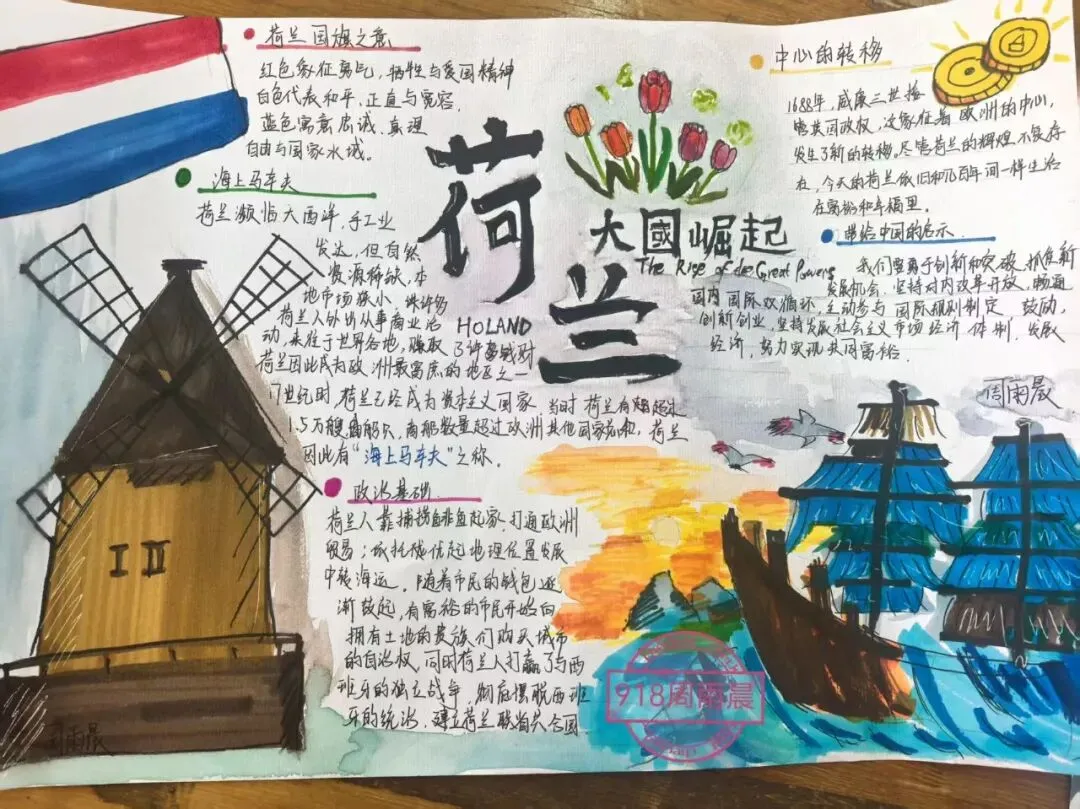 荷兰国旗之意
红色象征勇气，牺牲与爱国精神
白色代表和平，正直与宽容，
蓝色寓意忠诚、真理
自由与国家水域。
海上马车夫
荷兰濒临大西洋，手工业
发达，但自然
资源稀缺，本
地市场狭小，使许多
荷兰人外出从事商业活
动，来往于世界各地，赚取了许多钱财
荷兰因此成为欧洲最富庶的地区之一
17世纪时，荷兰已经成为资本主义国家，当时荷兰有超过
1.5万艘商船只，商船数量超过欧洲其他国家总和，荷兰
因此有“海上马车夫”之称。
政治基础
荷兰人靠捕捞鲱鱼起家，打通欧洲
贸易；依托优越地理位置发展
中转海运。随着市民的钱包逐
渐鼓起，有富裕的市民开始向
拥有土地的贵族们购买城市
的自治权，同时荷兰人打赢了与西
班牙的独立战争，彻底摆脱西班
牙的统治，建立荷兰联省共合国
荷兰
HOLAND
大國崛起
The Rise of the Great Powers
中心的转移
1688年，威廉三世接
管英国政权，这象征着欧洲的中心，
发生了新的转移。尽管荷兰的辉煌不复存
在，今天的荷兰依旧和几百年间一样生活
在富裕和幸福里。
带给中国的启示
我们要勇于创新和突破，抓住新
发展机会，坚持对内改革开放，畅通
国内国际双循环，主动参与国际规则制定，鼓励，
创新创业，坚持发展社会主义市场经济体制，发展
经济，努力实现共同富裕．
周雨晨
I II
周雨晨
918周雨晨